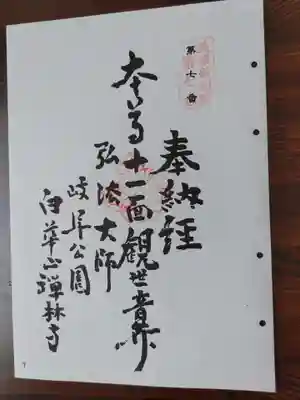 第七番
奉納経
本尊十一面観世音菩薩
弘法大師
岐阜公園
白華山禅林寺